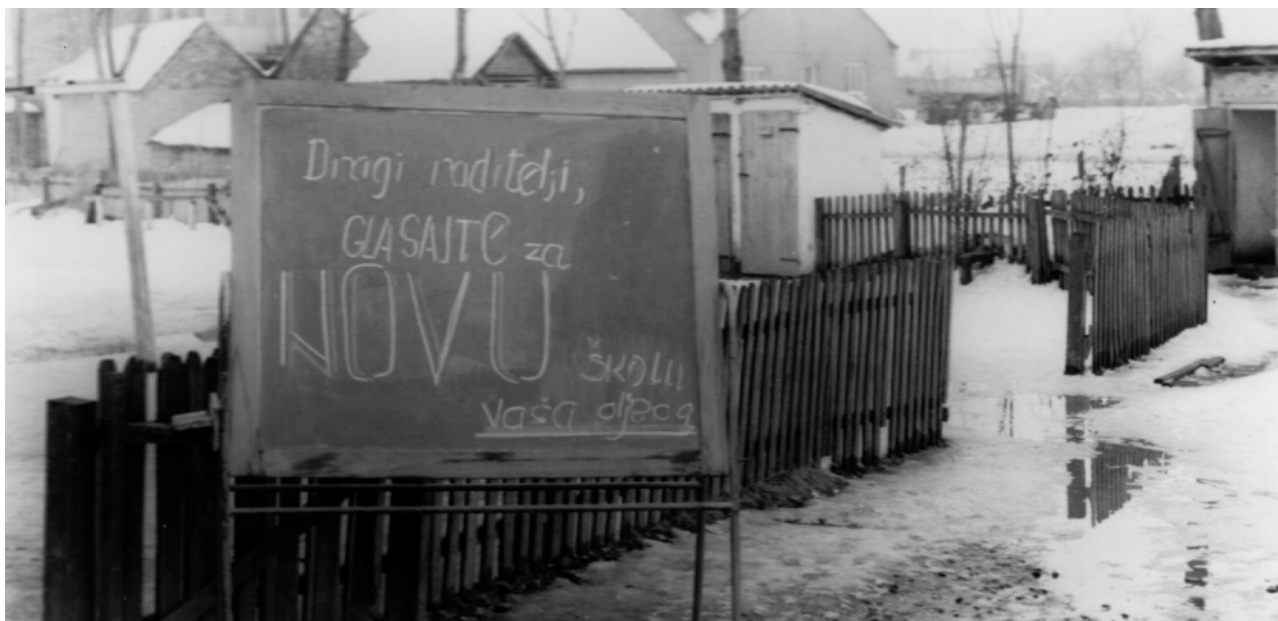 Dragi roditelji,
GLASAJTE za
NOVU
ŠKOLU
vaša djeca